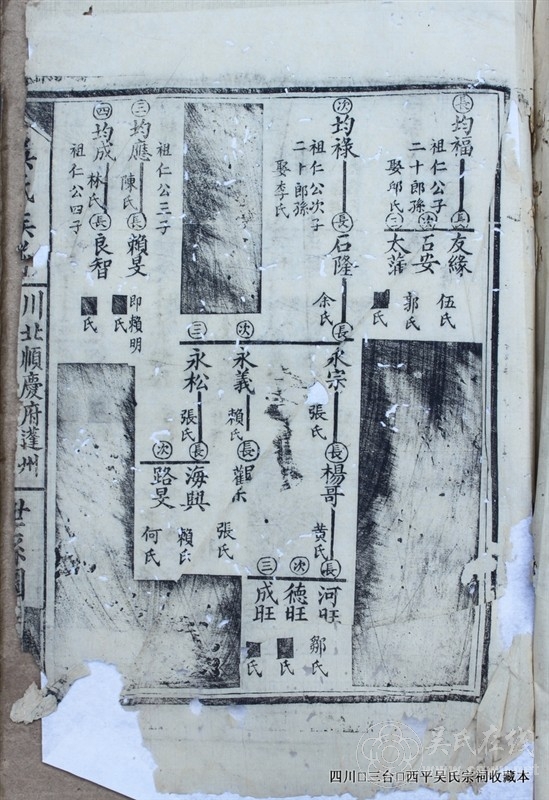 長 均福
祖仁公子
二十郎孫
娶邱氏
長 友緣
伍氏
次 石安
郭氏
三 太蒲
■氏
次 均祿
祖仁公次子
二十郎孫
娶李氏
長 石隆
余氏
長 永宗
張氏
次 永義
賴氏
三 永松
張氏
長 楊哥
黄氏
長
張氏
長 海興
賴氏
次 路旻
何氏
長 河旺
鄒氏
次 德旺
■氏
三 成旺
■氏
三 均應
祖仁公三子
陳氏
長 賴旻
即賴明
■氏
四 均成
祖仁公四子
林氏
長 良智
■氏
吳氏族譜
川北順慶府蓬州
世系圖
吴氏在线
四川□三台□西平吴氏宗祠收藏本